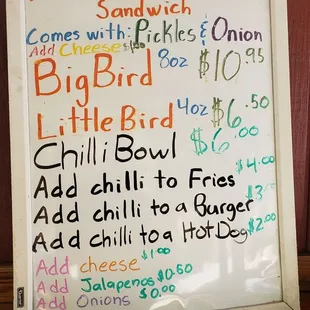 Sandwich
Comes with: Pickles & Onion
Add Cheese $1.00
Big Bird 8oz $10.95
Little Bird 4oz $6.50
Chilli Bowl $6.00
Add chilli to Fries $4.00
Add chilli to a Burger $3.00
Add chilli to a Hot Dog $2.00
Add cheese $1.00
Add Jalapenos $0.50
Add Onions $0.00